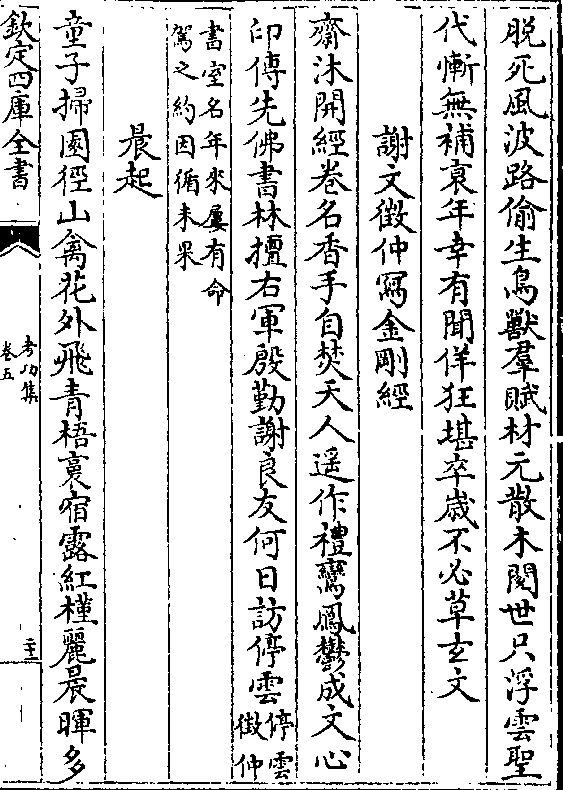 脫死風波路偷生鳥獸羣賦材元散木閱世只浮雲聖
代慚無補衰年幸有聞佯狂堪卒歲不必草玄文
謝文徵仲寫金剛經
齋沐開經卷名香手自焚天人遥作禮鸞鳳鬱成文心
印傳先佛書林擅右軍殷勤謝良友何日訪停雲停雲徵仲
書室名年來屢有命
駕之約因循未果
晨起
童子掃園徑山禽花外飛青梧裛宿露紅槿麗晨暉多
欽定四庫全書
考功集
卷五
二十二